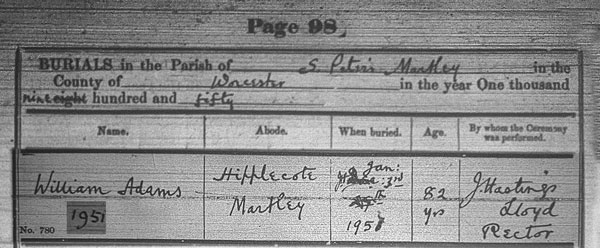 Page 98.
BURIALS in the Parish of S. Peter's Martley in the
County of Worcester in the year One thousand
nine eight hundred and fifty
Name. Abode. When buried. Age. By whom the Ceremony was performed.
William Adams
1951
No. 780
Hipplecote
Martley
Jan: 3rd
1951
82
yrs
J Hastings
Lloyd
Rector